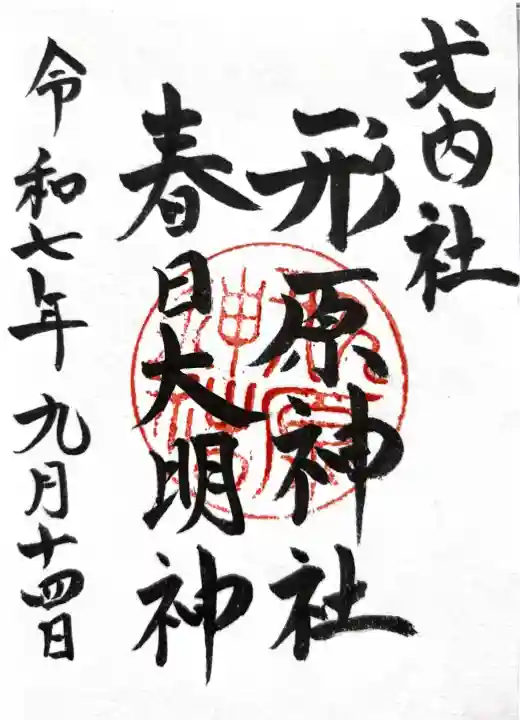 式内社
形原神社
春日大明神
令和七年九月十四日